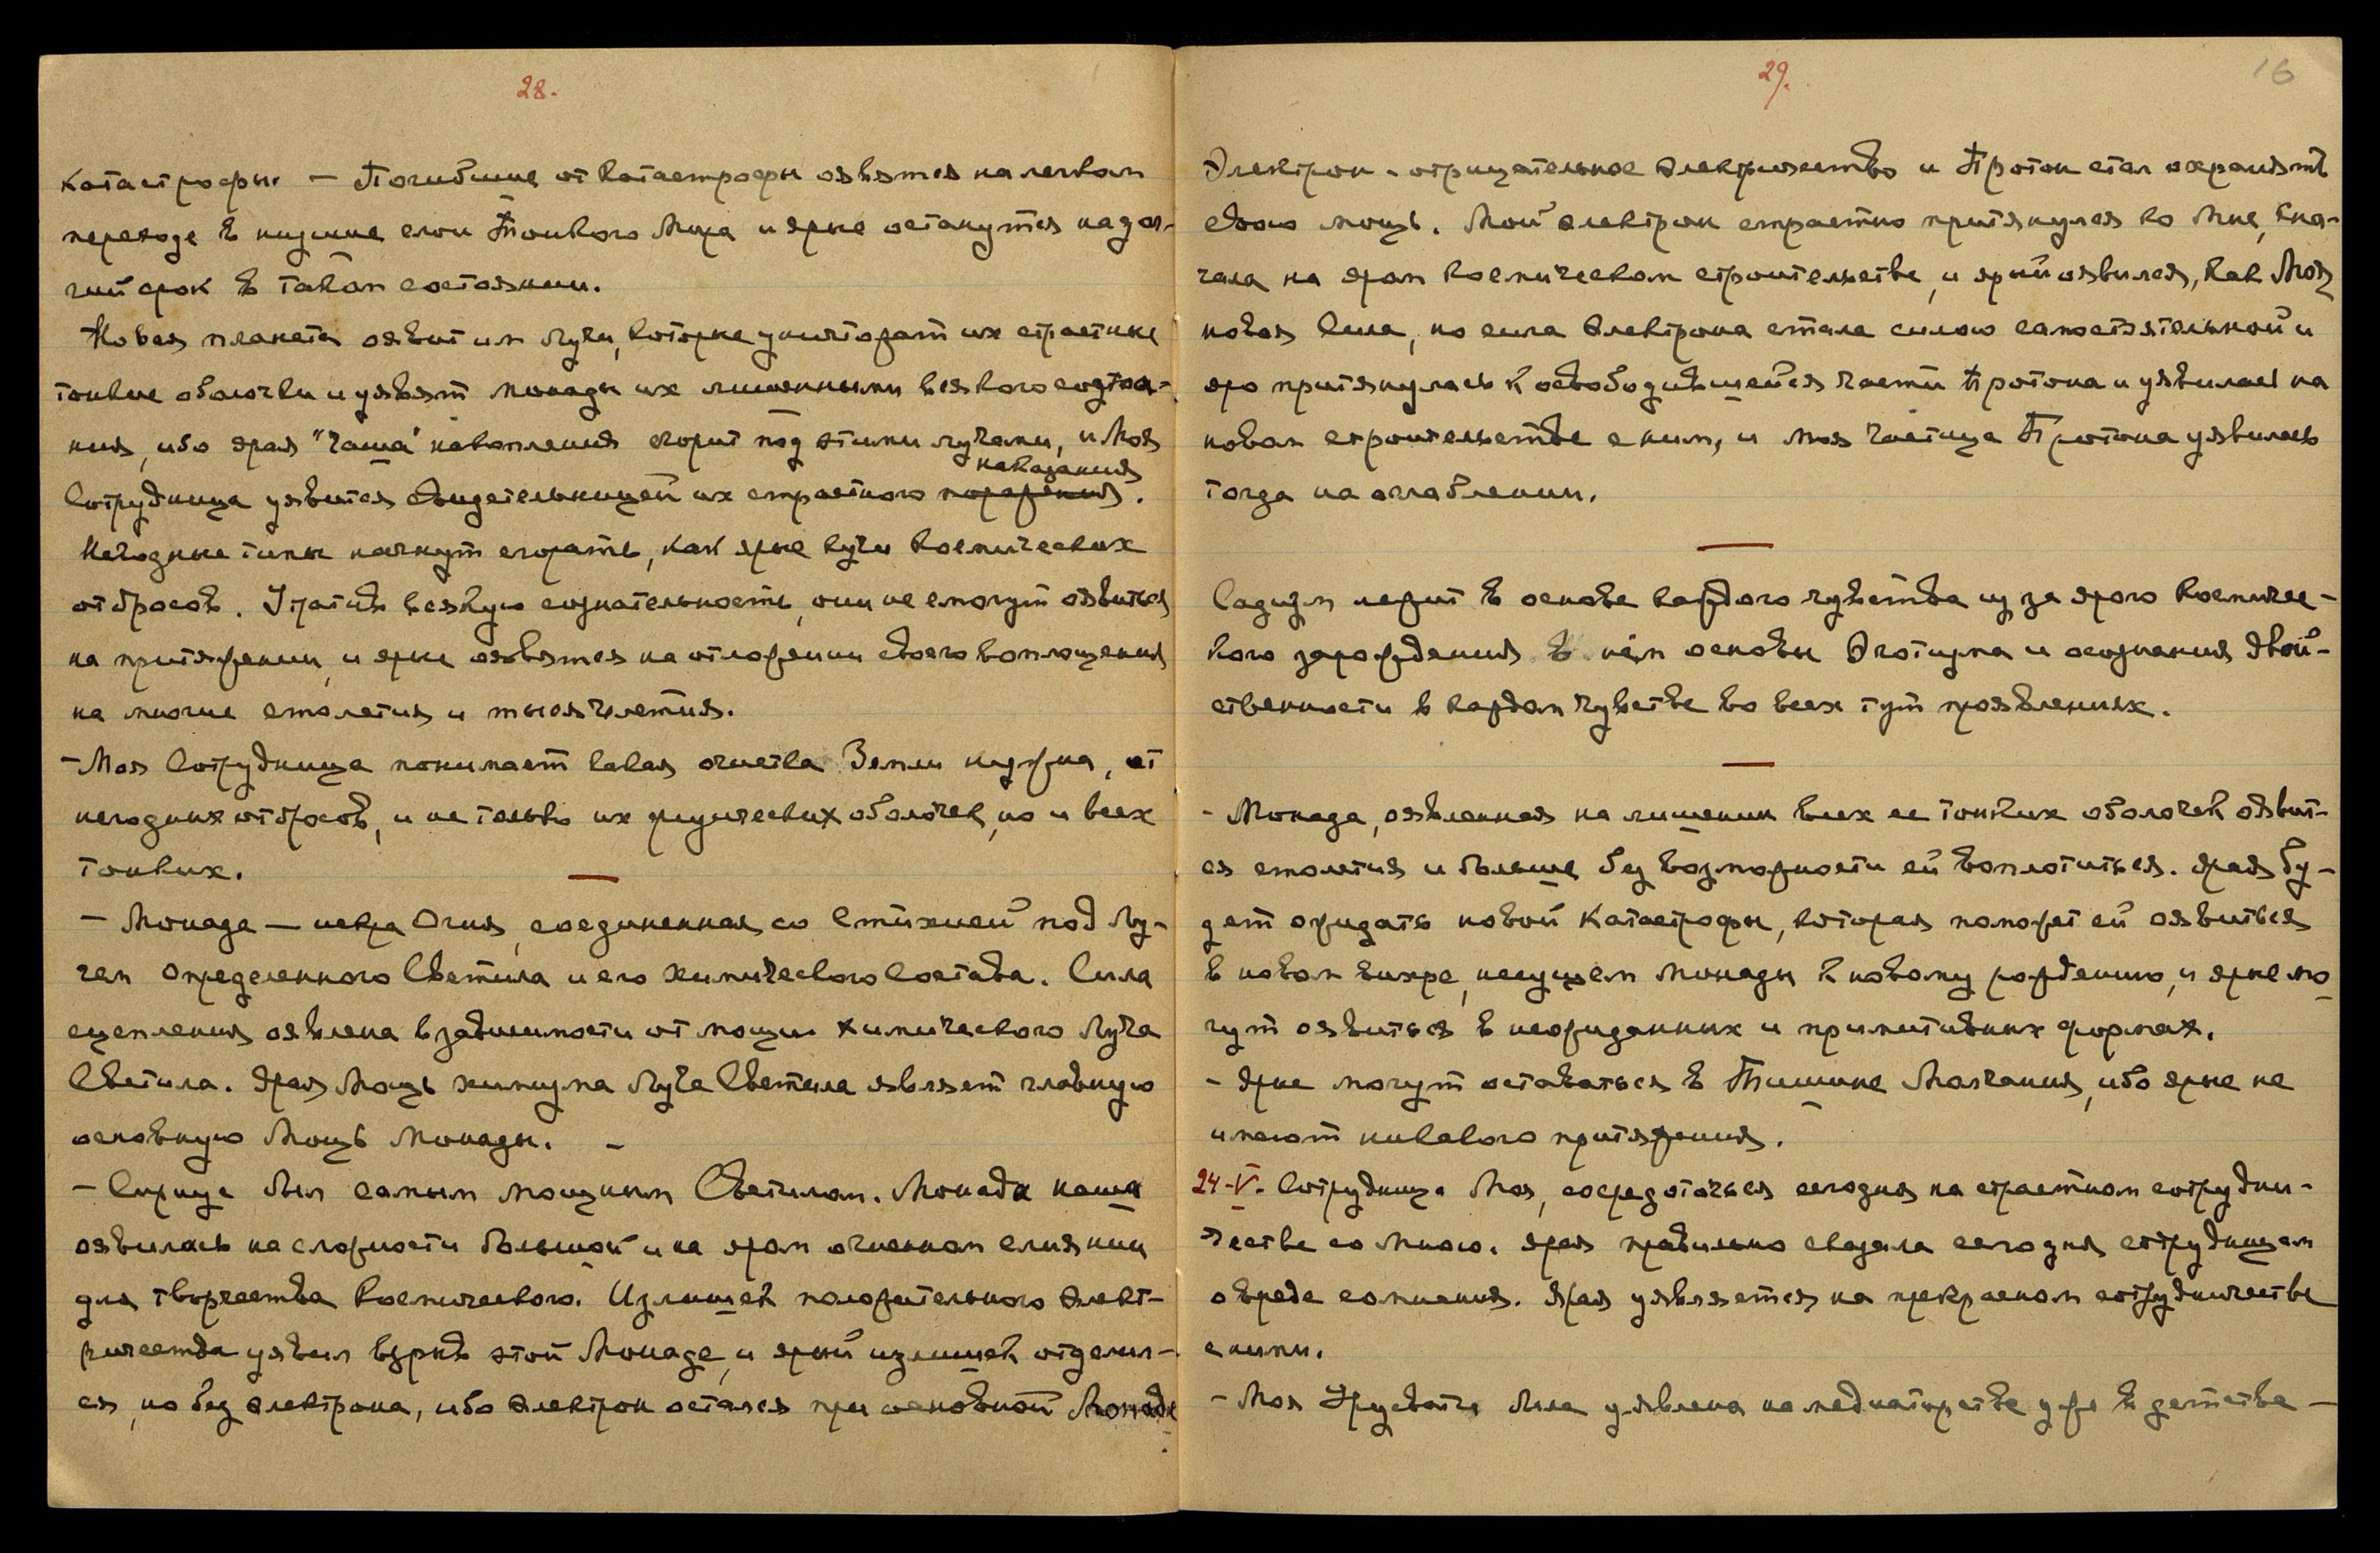 28.
катастрофы. — Погибшие от катастрофы оявятся на легком
переходе в низшие слои Тонкого Мира и ярые останутся на дол-
гий срок в таком состоянии.
Новая планета оявит им Лучи, которые уничтожат их страстные
тонкие оболочки и уявят монады их лишенными всякого созна-
ния, ибо ярая "Чаша" накопления сгорит под этими лучами, и Моя
наказания
Сотрудница уявится свидетельницей их страстного поражения.
Негодные типы начнут сгорать, как ярые кучи космических
отбросов. Утратив всякую сознательность, они не смогут оявиться
на притяжении, и ярые оявятся на отложении своего воплощения
на многие столетия и тысячелетия.
— Моя Сотрудница понимает какая очистка Земли нужна, от
негодных отбросов, и не только их физических оболочек, но и всех
тонких.
— Монада — искра Огня, соединенная со Стихией под Лу-
чем определенного Светила и его химического состава. Сила
сцепления оявлена в зависимости от мощи химического Луча
Светила. Ярая Мощь химизма Луча Светила являет главную
основную Мощь Монады. —
— Сириус был самым мощным Светилом. Монада наша
оявилась на сложности большой и на яром огненном слиянии
для творчества космического. Излишек положительного элект-
ричества уявил взрыв этой Монаде, и ярый излишек отделил-
ся, но без электрона, ибо электрон остался при основной Монаде
29.
16
Электрон - отрицательное электричество и Протон стал охранять
свою мощь. Мой электрон страстно притянулся ко Мне, сна-
чала на яром космическом строительстве, и ярый оявился, как Моя
новая Сила, но сила электрона стала силою самостоятельной и
яро притянулась к освободившейся части Протона и уявилась на
новом строительстве с ним, и моя частица Протона уявилась
тогда на ослаблении.
Садизм лежит в основе каждого чувства из за ярого космичес-
кого зарождения в нём основы Эготизма и осознания двой-
ственности в каждом чувстве во всех тут проявлениях.
- Монада, оявленная на лишении всех ее тонких оболочек оявит-
ся столетия и больше без возможности ей воплотиться. Ярая бу-
дет ожидать новой катастрофы, которая поможет ей оявиться
в новом вихре, несущем монады к новому рождению, и ярые мо-
гут оявиться в неожиданных и примитивных формах.
- Ярые могут оставаться в Тишине Молчания, ибо ярые не
имеют никакого притяжения.
24-V. Сотрудница Моя, сосредоточься сегодня на страстном сотрудни-
честве со Мною. Ярая правильно сказала сегодня сотрудницам
о вреде сомнения. Ярая уявляется на прекрасном сотрудничестве
с ними.
- Моя Урусвати была уявлена на медиаторстве уже в детстве —